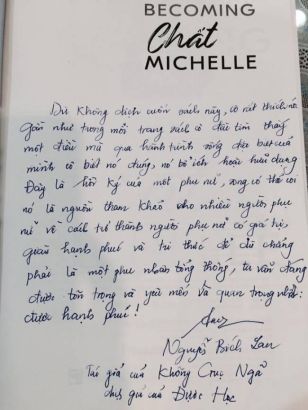 BECOMING
Chất
MICHELLE
Dù không dịch cuốn sách này, cô rất thích nó
Gần như trong mỗi trang sách cô đều tìm thấy
một điều mà qua hành trình sống đặc biệt của
mình cô biết nó đúng, nó bổ ích hoặc hữu dụng
Đây là hồi ký của một phụ nữ, song có thể coi
nó là nguồn tham khảo cho nhiều người phụ
nữ về cách trở thành người phụ nữ có giá trị,
giàu hạnh phúc và tri thức để dù chẳng
phải là một phu nhân tổng thống, ta vẫn đáng
được tôn trọng và yêu mến và quan trọng nhất:
được hạnh phúc!
Nguyễn Bích Lan
Tác giả của Không Gục Ngã
dịch giả của Được Học